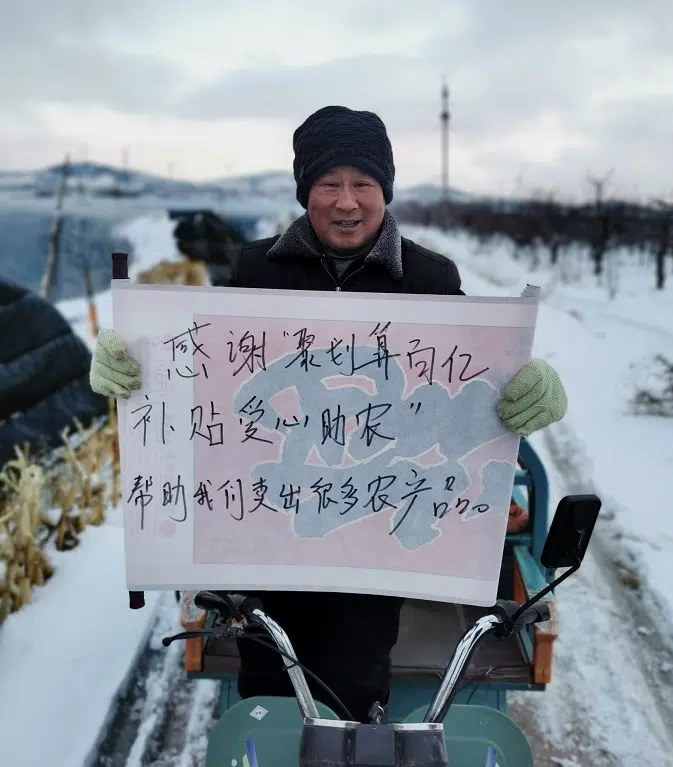 感谢“聚划算百亿
补贴爱心助农”
帮助我们卖出很多农产品。